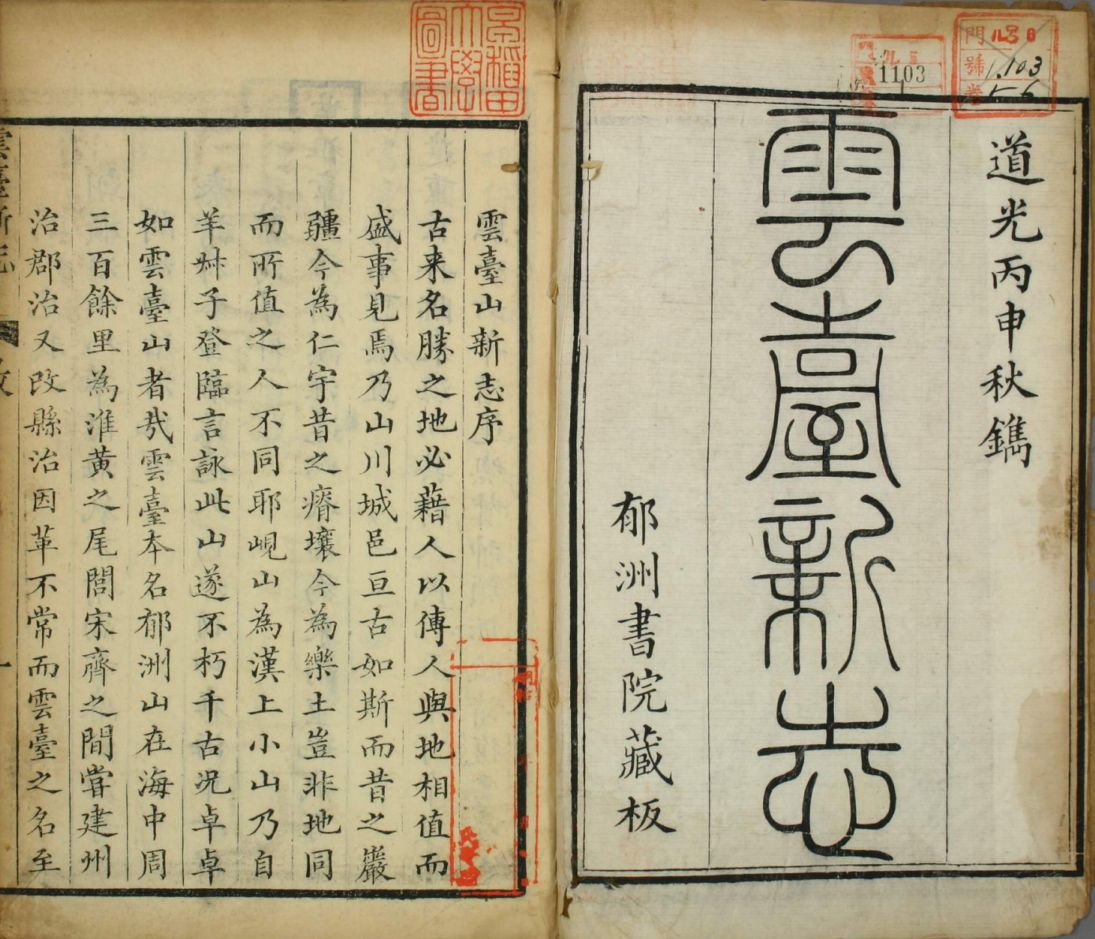 道光丙申秋鐫
雲臺新志
郁洲書院藏板
門 號 卷
1103
5-6
1103
早稲田大學圖書
雲臺山新志序
古来名勝之地必藉人以傳人與地相值而
盛事見焉乃山川城邑亘古如斯而昔之巖
疆今為仁宇昔之瘠壤今為樂土豈非地同
而所值之人不同耶峴山為漢上小山乃自
羊叔子登臨言詠此山遂不朽千古况卓卓
如雲臺山者㢤雲臺本名郁洲山在海中周
三百餘里為淮黃之尾閭宋齊之間嘗建州
治郡治又改縣治因革不常而雲臺之名至
雲臺新志
一